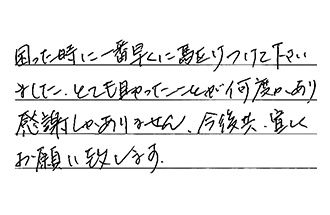 困った時に一番早くに駆けつけて下さい
ました。とても助かったことが何度かあり
感謝しかありません。今後共、宜しく
お願い致します。